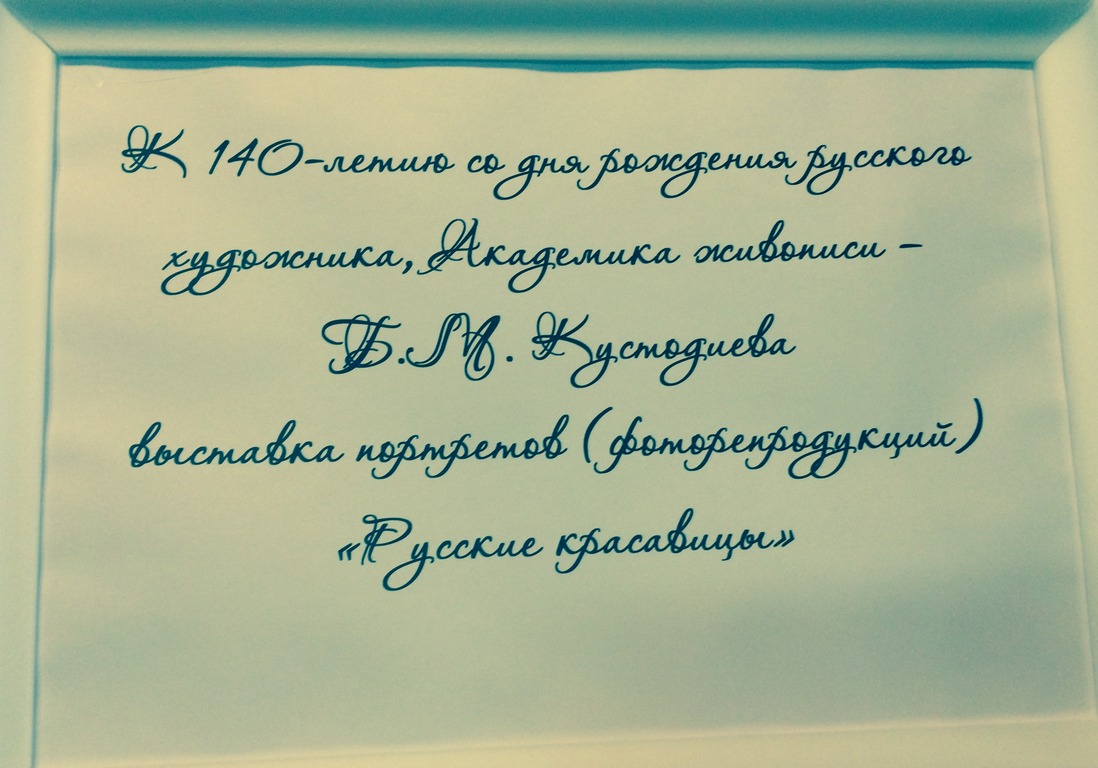 К 140-летию со дня рождения русского
художника, Академика живописи –
Б.М. Кустодиева
выставка портретов (фоторепродукций)
«Русские красавицы»